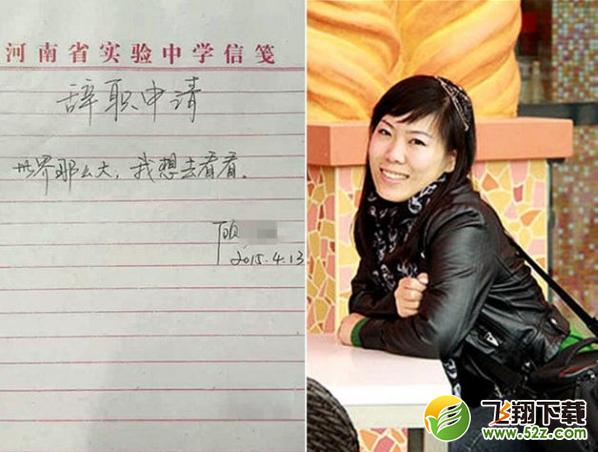 河南省实验中学信笺
辞职申请
世界那么大，我想去看看。
顾
2015.4.13
飞翔下载
www.52z.com